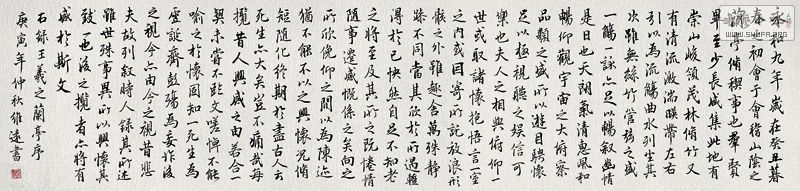 永和九年歲在癸丑暮
初會于會稽山陰之
亭脩稧事也羣賢
畢至少長咸集此地有
崇山峻領茂林脩竹又
有清流激湍暎帶左右
引以為流觴曲水列坐其
次雖無絲竹管弦之盛
一觴一詠亦足以暢敘幽情
是日也天朗氣清惠風和
暢仰觀宇宙之大俯察
品類之盛所以遊目騁懷
足以極視聽之娛信可
樂也夫人之相與俯仰一
世或取諸懷抱悟言一室
之內或因寄所託放浪形
骸之外雖趣舍萬殊靜
躁不同當其欣於所遇暫
得於己怏然自足不知老
之將至及其所之既惓情
隨事遷感慨係之矣向之
所欣俛仰之間以為陳迹
猶不能不以之興懷況脩
短隨化終期於盡古人云
死生亦大矣豈不痛哉每
攬昔人興感之由若合一
契未嘗不臨文嗟悼不能
喻之於懷固知一死生為
虛誕齊彭殤為妄作後
之視今亦由今之視昔悲
夫故列敘時人錄其所述
雖世殊事異所以興懷其
致一也後之攬者亦將有
感於斯文
右錄王羲之蘭亭序
庚寅年仲秋維達書
WWW.SHUFA.ORG